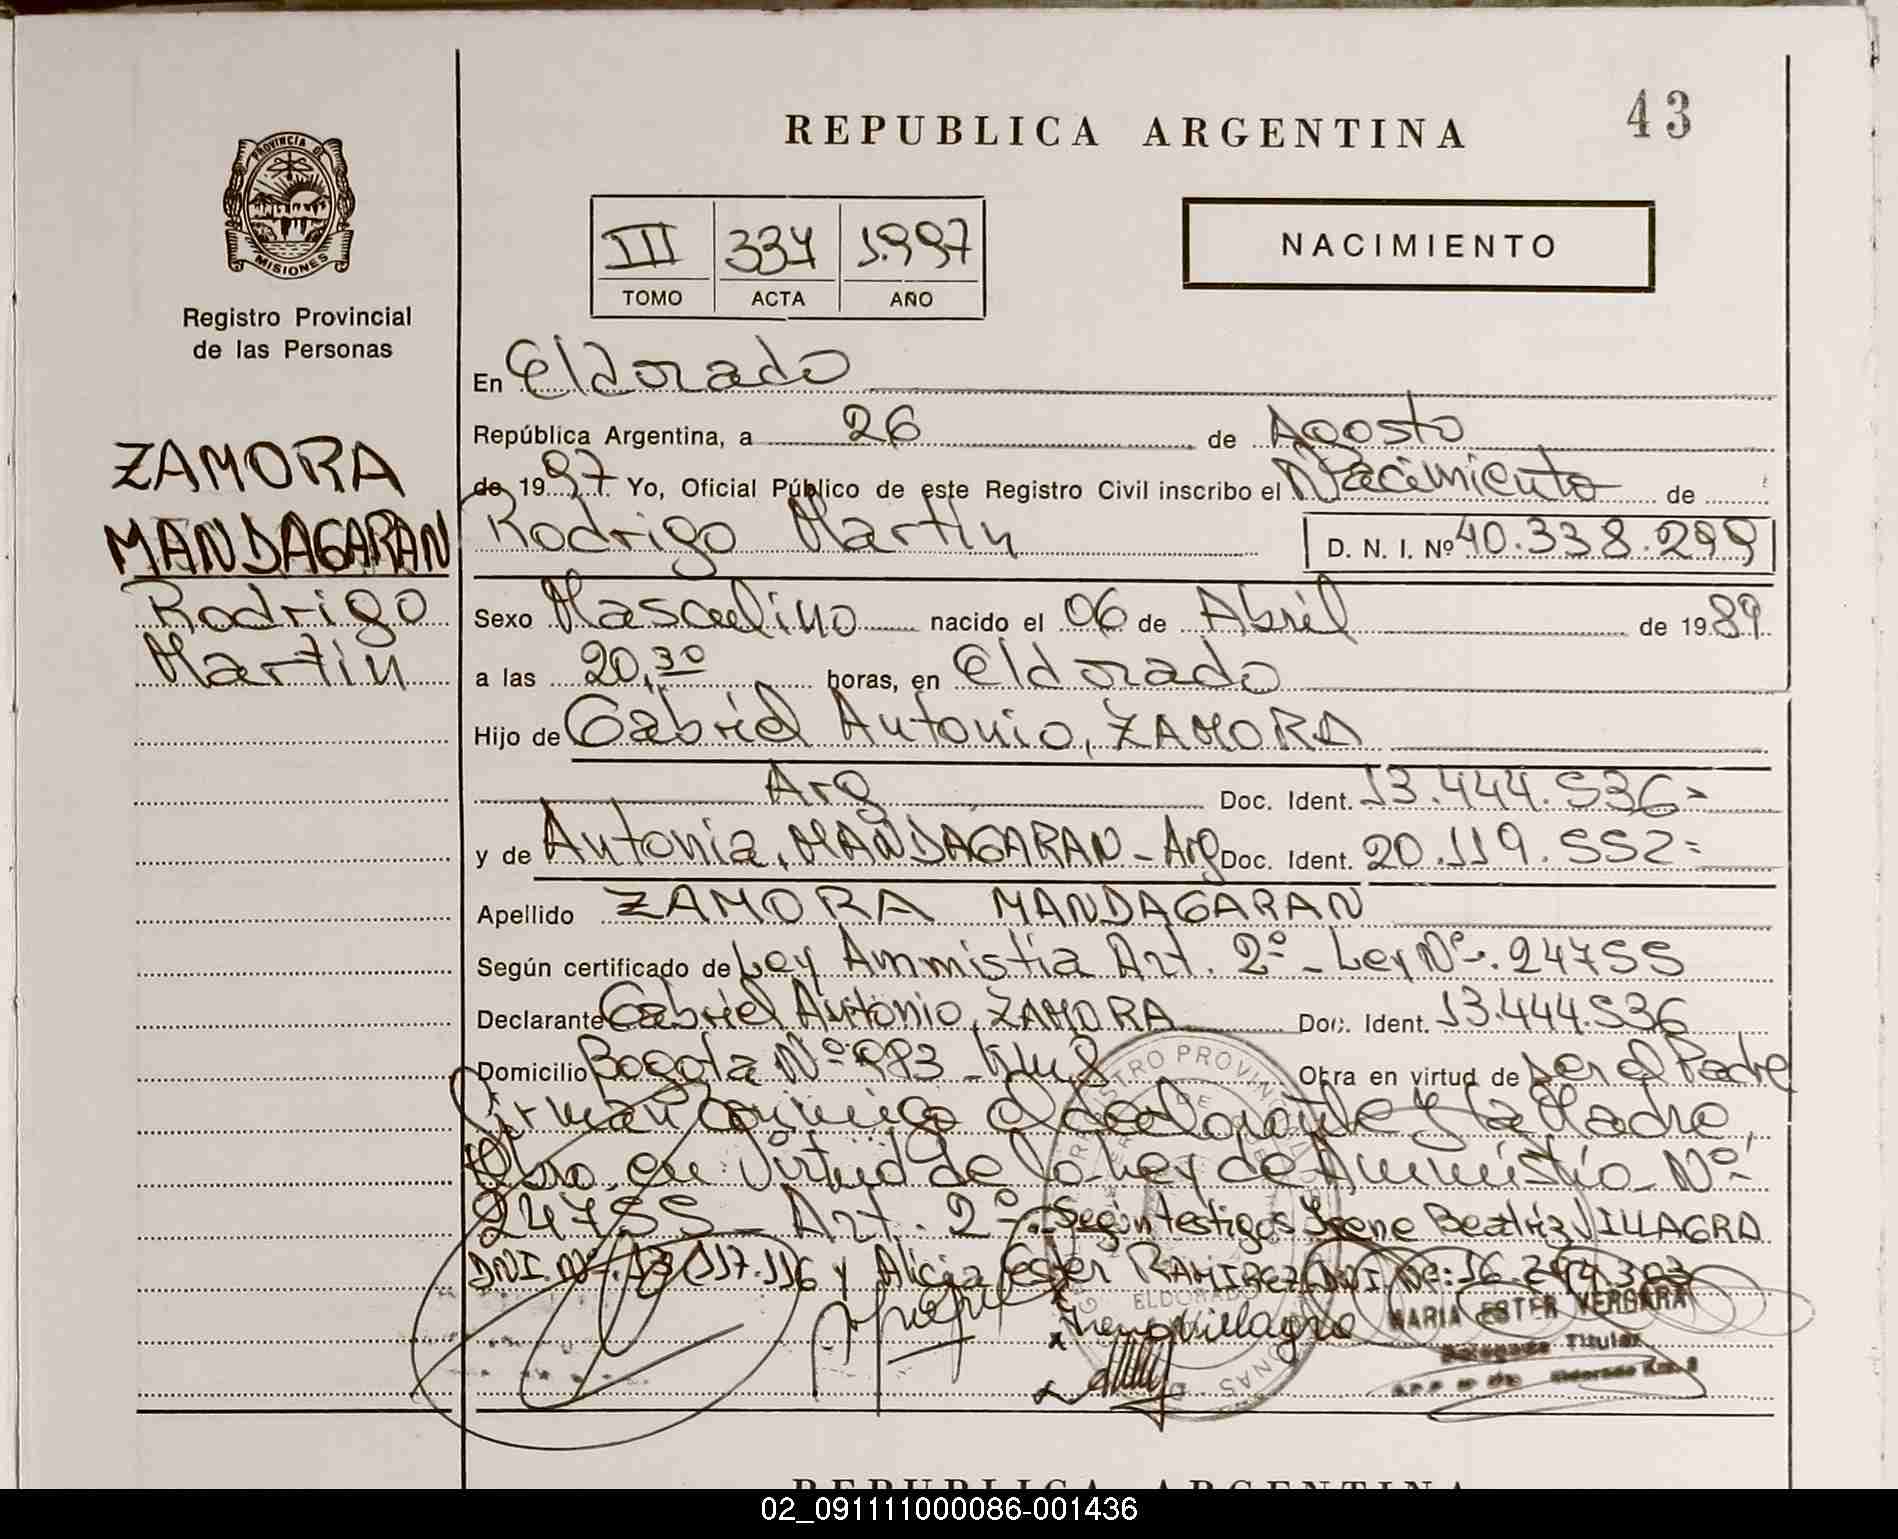 43
REPUBLICA ARGENTINA
PROVINCIA DE
MISIONES
Registro Provincial
de las Personas
III 334 1.997
TOMO ACTA AÑO
NACIMIENTO
ZAMORA
MANDAGARAN
Rodrigo
Martin
En Eldorado
República Argentina, a 26 de Agosto
de 1997. Yo, Oficial Público de este Registro Civil inscribo el Nacimiento de
Rodrigo Martin D. N. I. Nº 40.338.299
Sexo Masculino nacido el 06 de Abril de 1989.
a las 20,30 horas, en Eldorado
Hijo de Gabriel Antonio, ZAMORA
Arg Doc. Ident. 13.444.536=
y de Antonia, MANDAGARAN - Arg Doc. Ident. 20.119.552=
Apellido ZAMORA MANDAGARAN
Según certificado de Ley Ammistia Art. 2º - Ley Nº. 24755
Declarante Gabriel Antonio, ZAMORA Doc. Ident. 13.444.536
Domicilio Bogota Nº 983 - Km 8 Obra en virtud de ser el Padre
Firman conmigo el declarante y la Madre,
Obro en Virtud de la Ley de Ammistia Nº
24755 - Art. 2º - Según testigos Irene Beatriz VILLAGRA
DNI. Nº 13.117.116 y Alicia Ester RAMIREZ DNI Nº: 16.294.303
ELDORADO
Irene Villagra
MARIA ESTER VERGARA
Delegada Titular
Eldorado Km. 8
REPUBLICA ARGENTINA
02_091111000086-001436